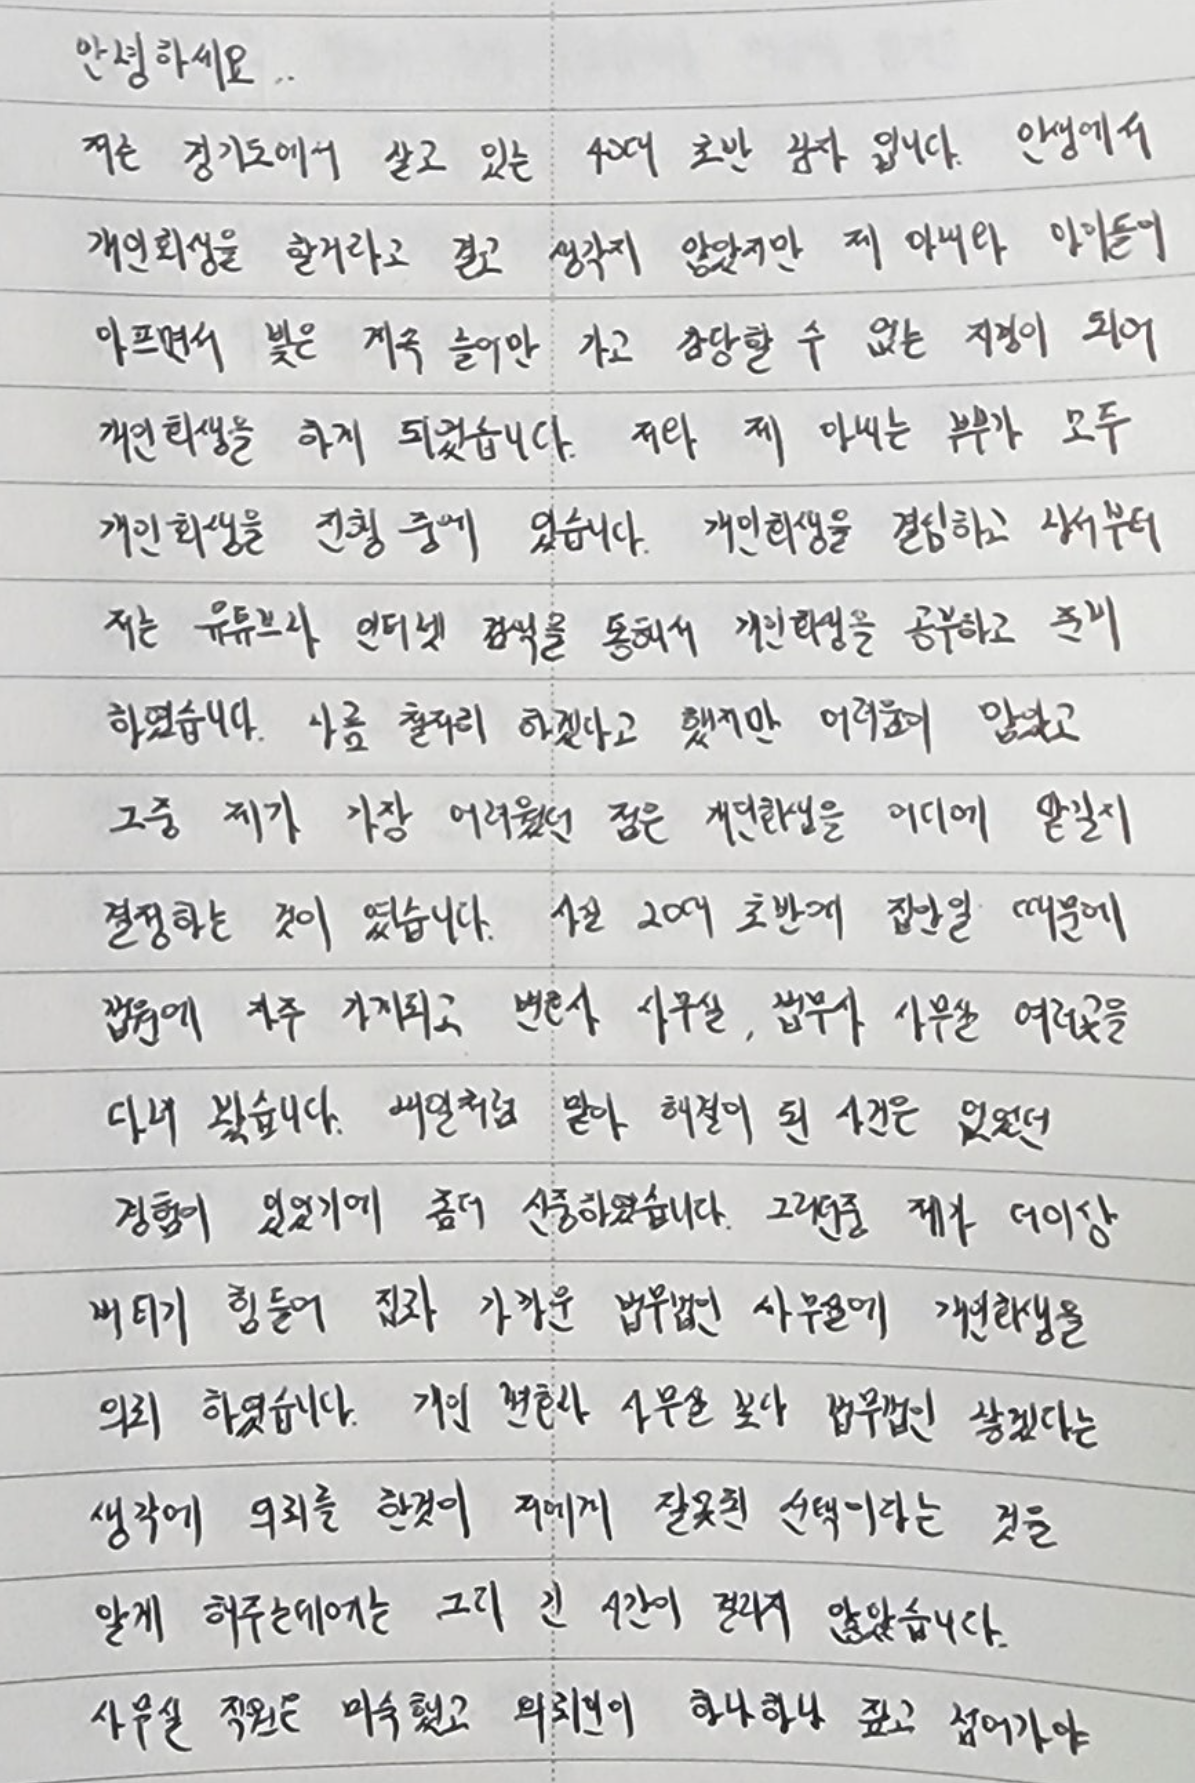 안녕하세요..
저는 경기도에서 살고 있는 40대 초반 남자 입니다. 인생에서
개인회생을 할거라고 결고 생각지 않았지만 제 아내와 아이들이
아프면서 빚은 계속 늘어만 가고 감당할 수 없는 지경이 되어
개인회생을 하게 되었습니다. 저와 제 아내는 부부가 모두
개인회생을 진행 중에 있습니다. 개인회생을 결심하고 나서부터
저는 유튜브나 인터넷 검색을 통해서 개인회생을 공부하고 준비
하였습니다. 나름 철저히 하겠다고 했지만 어려움이 많았고
그중 제가 가장 어려웠던 점은 개인회생을 어디에 맡길지
결정하는 것이 였습니다. 사실 20대 초반에 집안일 때문에
법원에 자주 가게되고 변호사 사무실, 법무사 사무실 여러곳을
다녀 봤습니다. 내일처럼 맡아 해결이 된 사건은 없었던
경험이 있었기에 좀더 신중하였습니다. 그러던중 제가 더이상
버티기 힘들어 집과 가까운 법무법인 사무실에 개인회생을
의뢰 하였습니다. 개인 변호사 사무실 보다 법무법인 좋겠다는
생각에 의뢰를 한것이 저에게 잘못된 선택이라는 것을
알게 해주는데에는 그리 긴 시간이 걸리지 않았습니다.
사무실 직원은 미숙했고 의뢰인이 하나하나 짚고 넘어가야